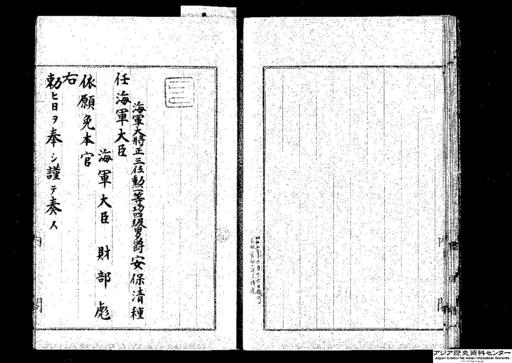 海軍大将正三位勲一等功四級男爵安保清種
任海軍大臣
海軍大臣 財部彪
依願免本官
右
勅ヒ日ヲ奉シ謹テ奏ス
内閣
内閣
アジア歴史資料センター
Japan Center for Asian Historical Records